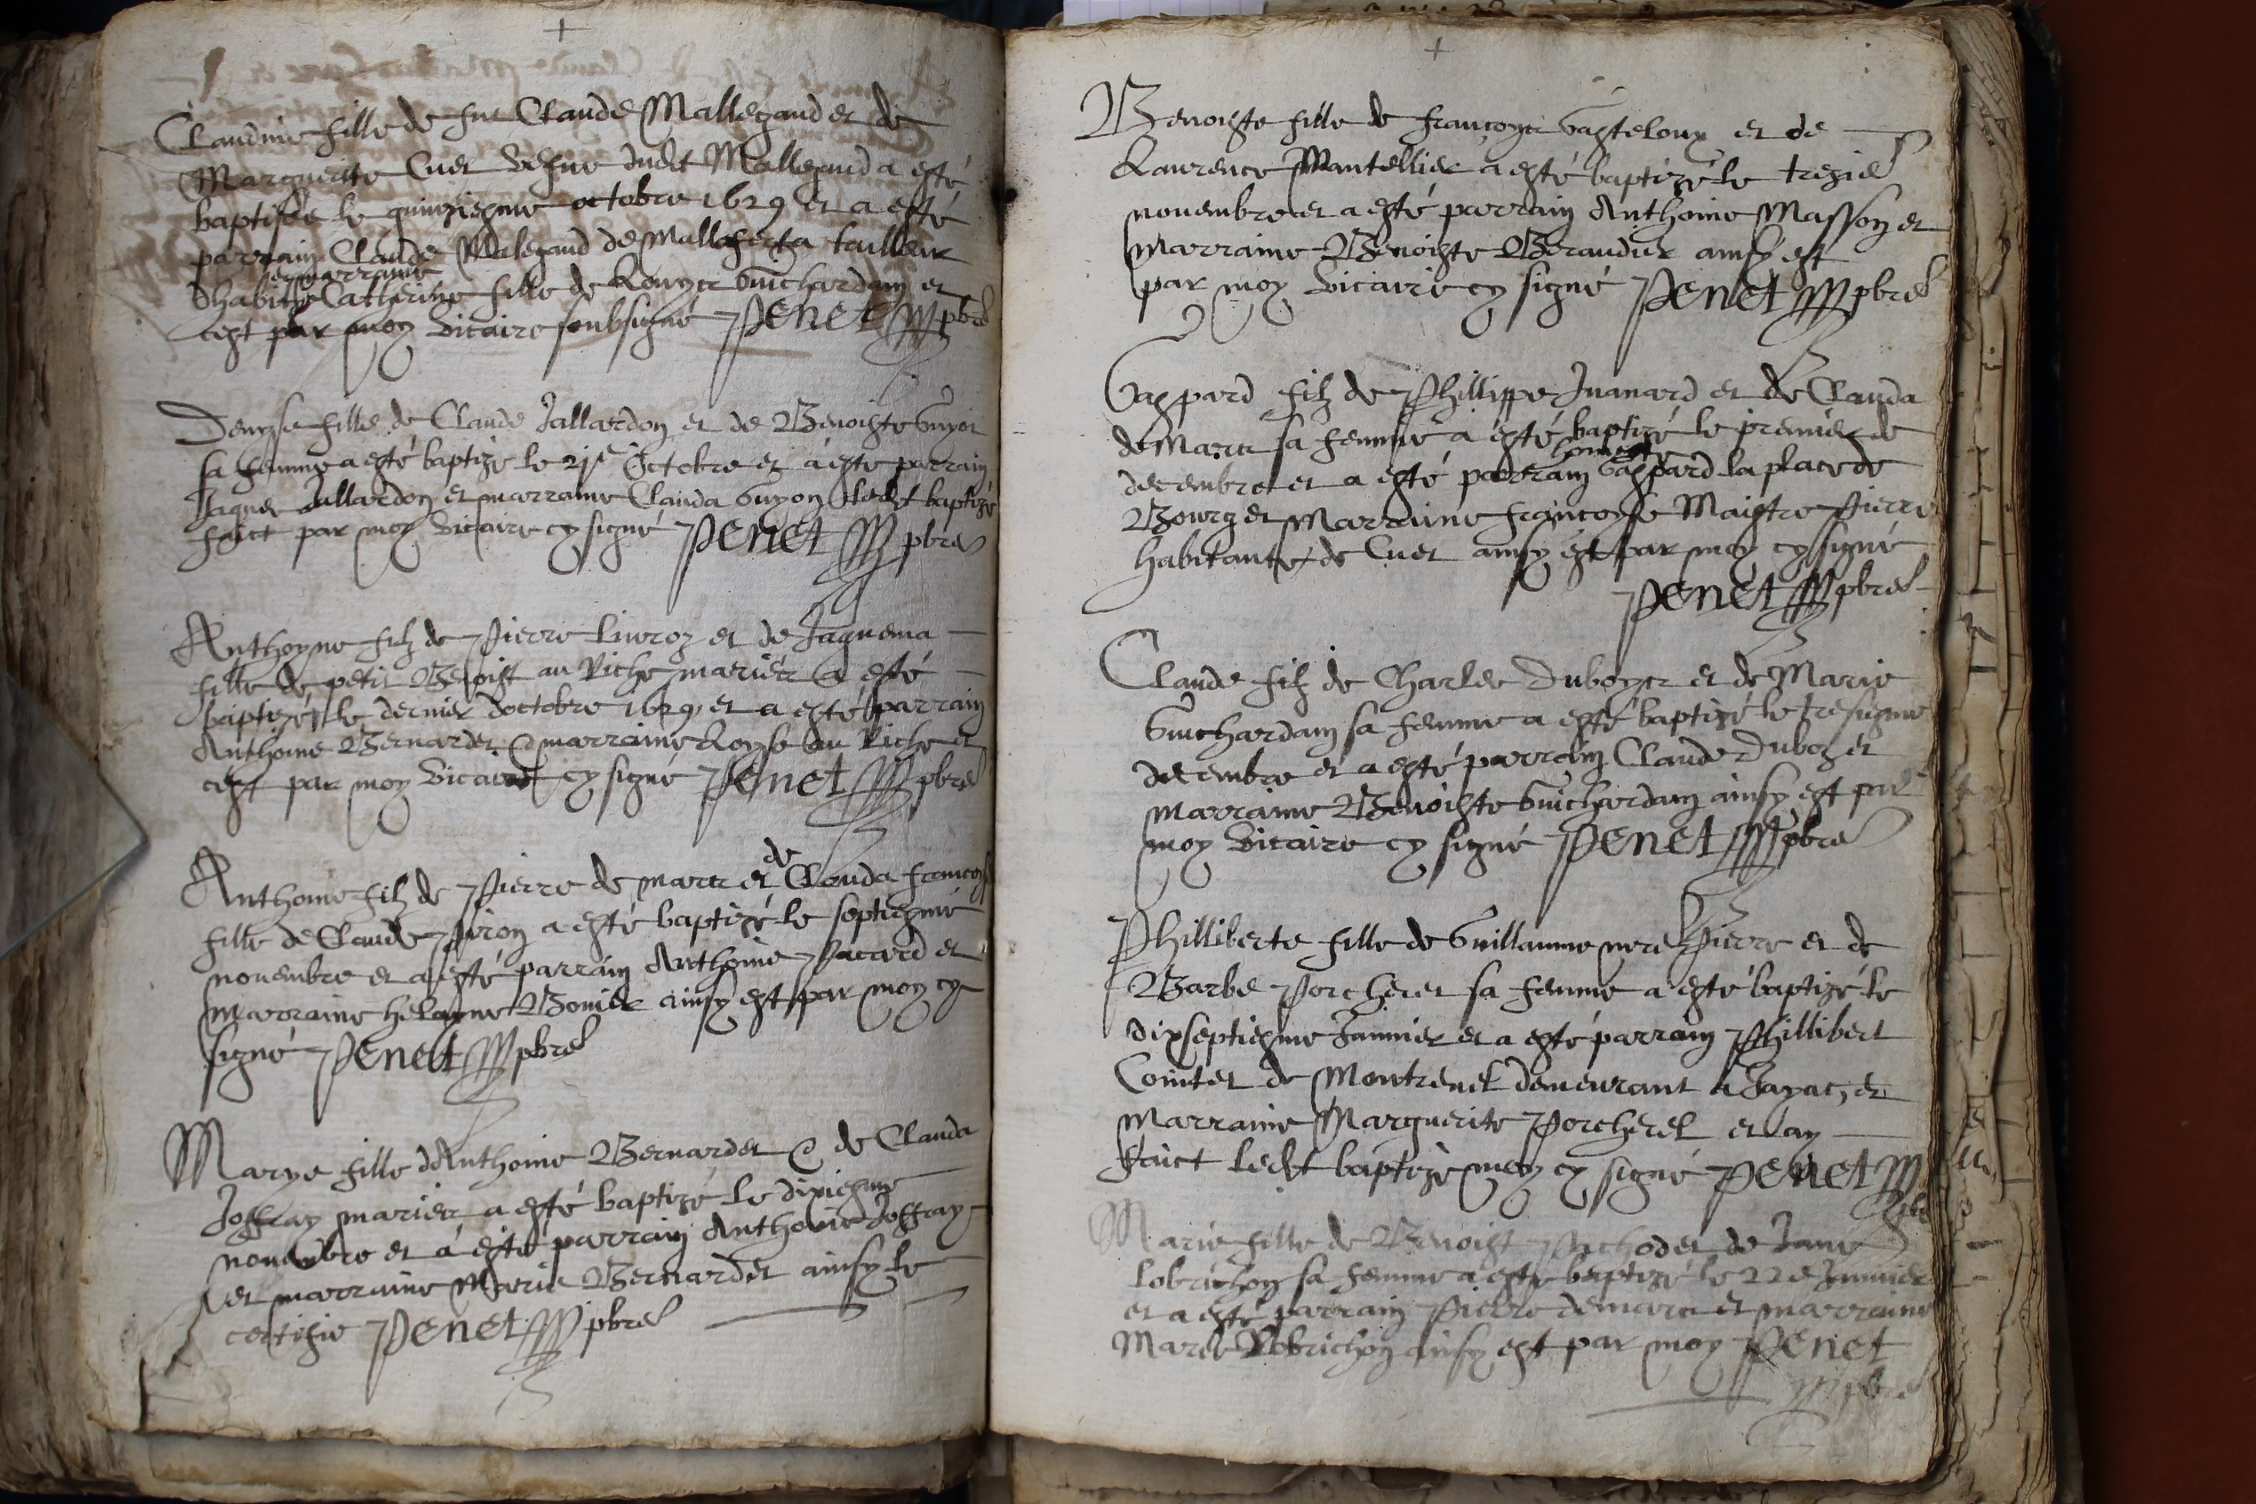 Claudine fille de fut Claude Mallegand et de
Marguerite Cuet vefue dudt Mallegand a esté
baptisée le quinziesme octobre 1629 et a esté
parrain Claude Malegand de Mallaferta tailleur
et marraine
dhabitz Catherine fille de Louys Guichardan et
cest par moy vicaire soubsigné Penet pbre
Denyse fille de Claude Jallardon et de Benoiste Guyot
sa femme a esté baptizé le 21e Octobre et a esté parrain
Jaques Jallardon et marraine Clauda Guyon ledt baptizé
faict par moy vicaire cy signé Penet pbre
Anthoyne filz de Pierre Livroz et de Jaquema
fille de petit Benoist au Riche mariés a esté
baptizé le dernier doctobre 1629 et a esté parrain
Anthoine Bernardet & marraine Loyse au Riche et
cest par moy vicaire cy signé Penet pbre
de
Anthoine filz de Pierre de mars et Clauda francoys
fille de Claude Piron a esté baptizé le septiesme
novembre et a esté parrain Anthoine Pacard et
marraine helayne Bonier ainsy est par moy cy
signé Penet pbre
Marye fille dAnthoine Bernardet & de Clauda
Joffray mariés a esté baptizé le dixiesme
novembre et a esté parrain Anthoine Joffray
et marraine Marie Bernardet ainsy le
certifie Penet pbre
Benoiste fille de francoys Gasteloux et de
Laurence Mantellier a esté baptizé le trezie
novembre et a esté parrain Anthoine Masson et
Marraine Benoiste Beraudier ainsy est
par moy vicaire cy signé Penet pbre
Gaspard filz de Phillippe Juanard et de Clauda
de Mars sa femme a esté baptizé le premier de
honneste
decembre et a esté parrain Gaspard la place de
Bourg et Marraine francoyse Maistre Pierre
habitante de Cuet ainsy est par moy cy signé
Penet pbre
Claude filz de Charles Duboys et de Marie
Guichardan sa femme a esté baptizé le tresiesme
decembre et a esté parrain Claude Duboz et
marraine Benoiste Guichardan ainsy est par
moy vicaire cy signé Penet pbre
Philliberte fille de Guillaume mere Pierre et de
Barbe Porcheret sa femme a esté baptizé le
dixseptiesme Januier et a esté parrain Phillibert
Cointet de Montrevel demeurant a Jayac, et
marraine Marguerite Porcherel et lay
faict ledt baptizé moy cy signé Penet
pbre
Marie fille de Benoist Pochod et de Jane
lobrichon sa femme a esté baptizé le 22e Januier
et a esté parrain Pierre demars et marraine
Marie Lobrichon ainsy est par moy Penet
pbre